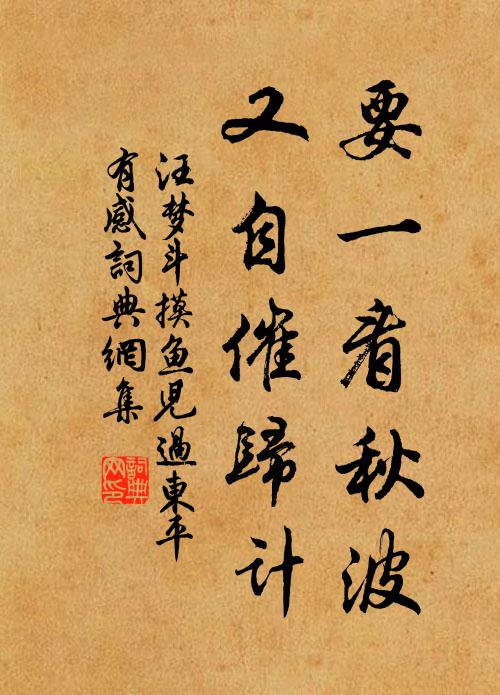 要一看秋波
又自催歸计
汪梦斗摸鱼児過東平
有感詞典網集
詞典網印